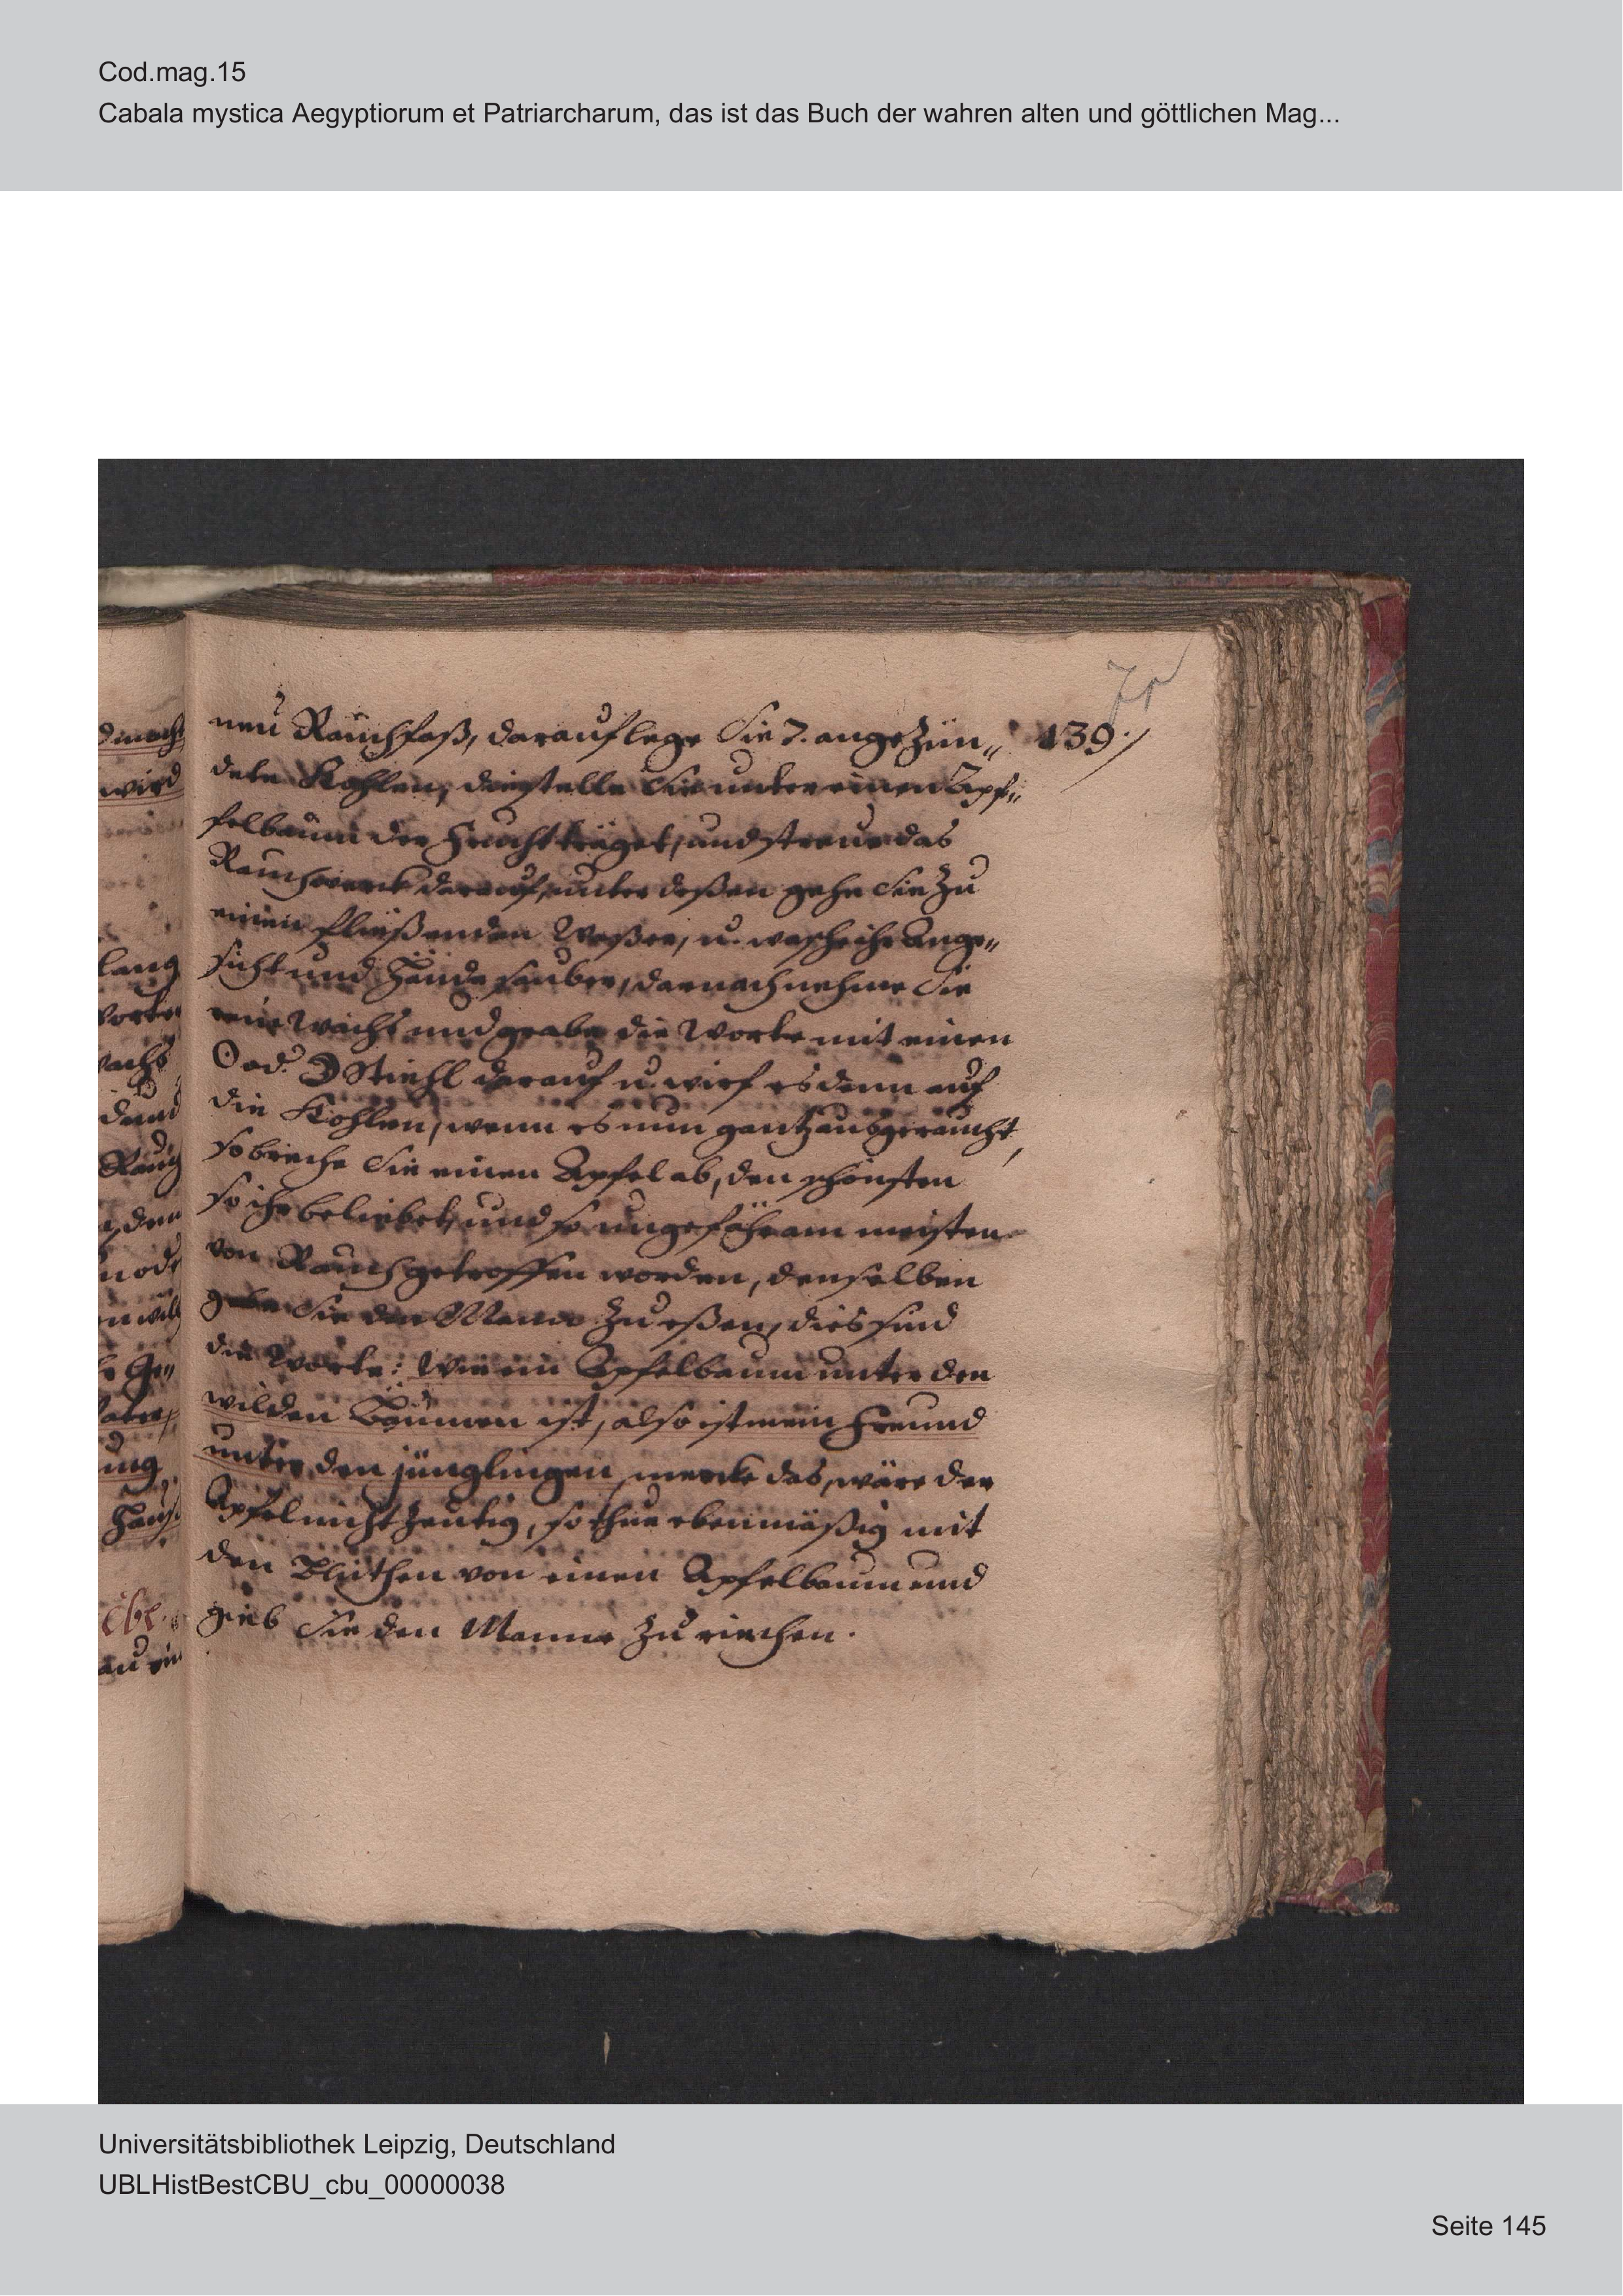 Cod.mag.15
Cabala mystica Aegyptiorum et Patriarcharum, das ist das Buch der wahren alten und göttlichen Mag...
139.
neu Rauchfaß, darauf lege Sie 7. angezün„
dete Kohlen, die stelle Sie unter einen Apf„
felbaum der Frucht träget, und streue das
Rauchwerck darauf, unter deßen gehe Sie zu
einen fließenden Waßer, u. wasche ihr Ange„
sicht und Hände sauber, darnach nehme Sie
rein Wachs und grabe die Worte mit einen
☉ od. ☽ Stiehl darauf u. wirf es denn auf
die Kohlen, wenn es nun gantz ausgeraucht,
so breche Sie einen Apfel ab, den schönsten
so ihr beliebet, und so ungefähr am meisten
von Rauch getroffen worden, denselben
gebe Sie den Manne zu eßen, dies sind
die Worte: Wie ein Apfelbaum unter den
wilden Bäumen ist, also ist mein Freund
unter den jünglingen, mercke das, wäre der
Apfel nicht zeutig, so thue ebenmäßig mit
den Blüthen von einen Apfelbaum und
gieb Sie den Manne zu riechen.
wird
lang
Universitätsbibliothek Leipzig, Deutschland
UBLHistBestCBU_cbu_00000038
Seite 145